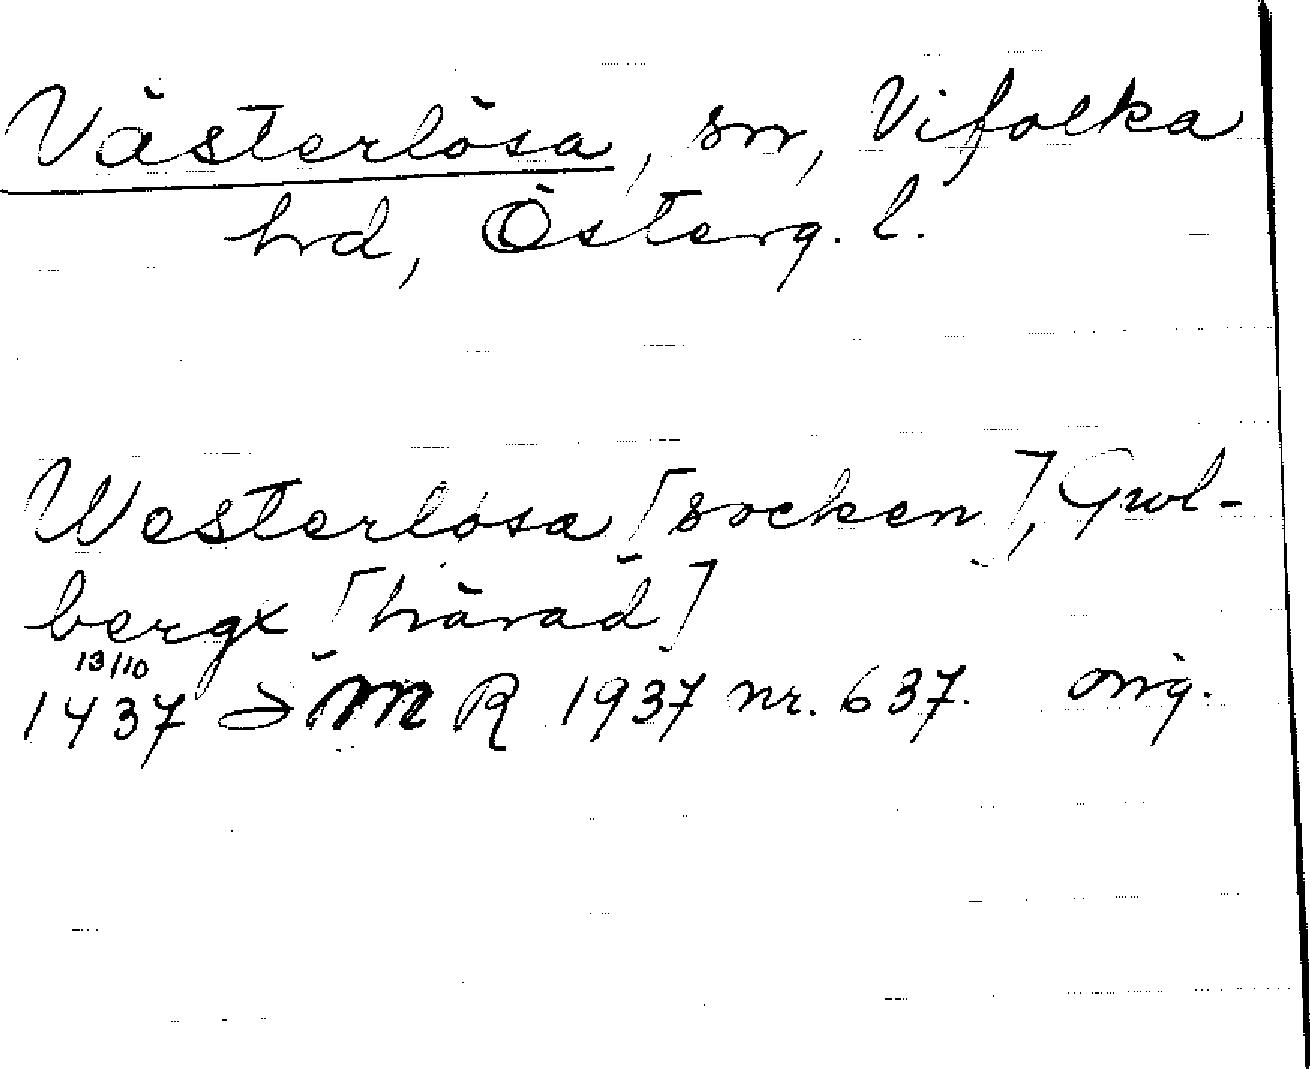 Västerlösa, sn, Vifolka
hrd, Österg. l.
Westerlosa [socken], Gwl-
bergx [härad]
13/10
1437 ÄMR 1937 nr. 637. orig.